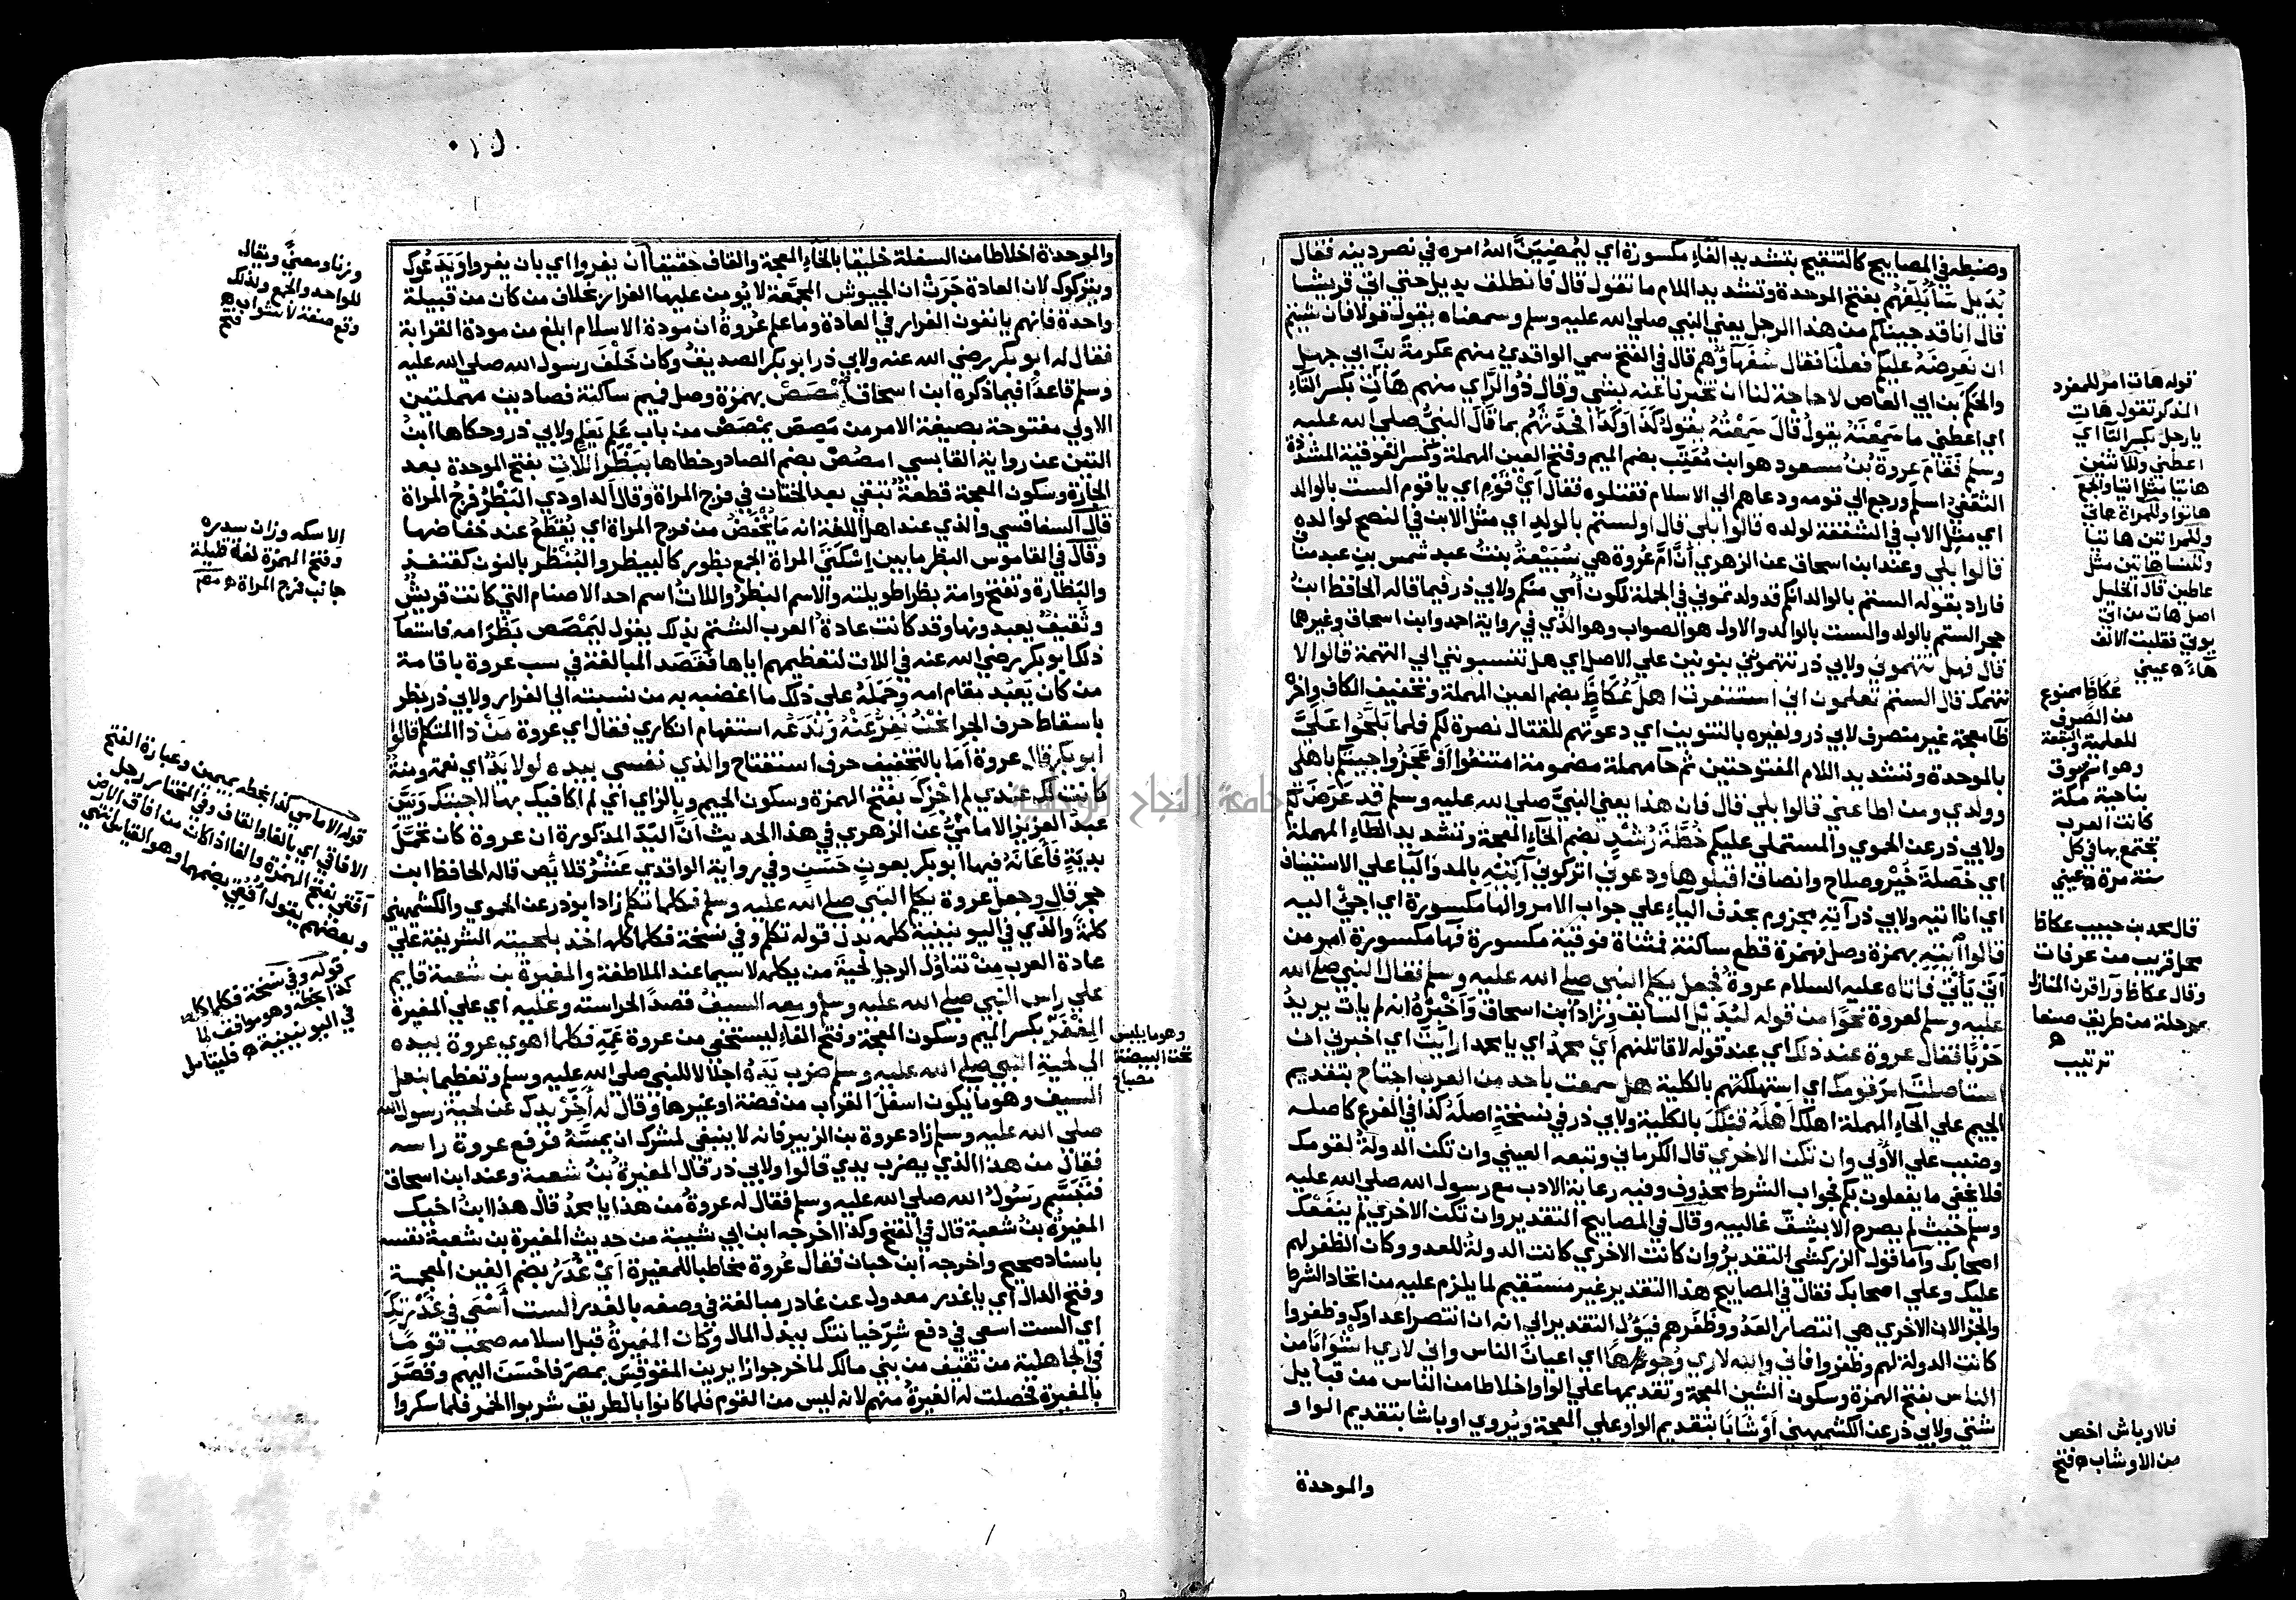 وضبطه في المصابيح كالتنقيح بتشديد الفاء مكسورة اي ليمضين الله امره في نصر دينه فقال
بديل سأبلغهم بفتح الموحدة وتشديد اللام ما تقول قال فانطلق بديل حتي اتي قريشا
قال انا قد جيناكم من هذا الرجل يعني النبي صلي الله عليه وسلم وسمعناه يقول قولا فان شيتم
ان نعرضه عليكم فعلنا فقال سفهاؤهم قال في الفتح سمي الواقدي منهم عكرمة بن ابي جهل
والحكم بن ابي العاص لا حاجة لنا ان تخبرنا عنه بشي وقال ذو الراي منهم هات بكسر التاء
اي اعطني ما سمعته يقول قال سمعته يقول كذا وكذا فحدثهم بما قال النبي صلي الله عليه
وسلم فقام عروة بن مسعود هو ابن معتب بضم الميم وفتح العين المهملة وكسر الفوقية المشددة
الثقفي اسلم ورجع الي قومه ودعاهم الي الاسلام فقتلوه فقال اي قوم اي يا قوم الست بالوالد
اي مثل الاب في الشفقة لولده قالوا بلي قال اولستم بالولد اي مثل الابن في النصح لوالده
قالوا بلي وعند ابن اسحاق عن الزهري ان ام عروة هي سبيعة بنت عبد شمس بن عبد مناف
فاراد بقوله الستم بالوالد انكم قد ولدتموني في الجملة لكون امي منكم ولابي ذر فيما قاله الحافظ ابن
حجر الستم بالولد والست بالوالد والاول هو الصواب وهو الذي في رواية احمد وابن اسحاق وغيرهما
قال فهل تتهموني ولابي ذر تتهمونني بنونين علي الاصل اي هل تنسبونني الي التهمة قالوا لا
نتهمك قال الستم تعلمون اني استنفرت اهل عكاظ بضم العين المهملة وتخفيف الكاف واخره
ظا معجمة غير منصرف لابي ذر ولغيره بالتنوين اي دعوتهم للقتال نصرة لكم فلما بلحوا علي
بالموحدة وتشديد اللام المفتوحتين ثم حا مهملة مضمومة امتنعوا او عجزوا جيتكم باهلي
وولدي ومن اطاعني قالوا بلي قال فان هذا يعني النبي صلي الله عليه وسلم قد عرض لكم
ولابي ذر عن الحموي والمستملي عليكم خطة رشد بضم الخاء المعجمة وتشديد الطاء المهملة
اي خصلة خير وصلاح وانصاف اقبلوها ودعوني اتركوني آتيه بالمد والياء علي الاستيناف
اي انا اتيه ولابي ذر آته مجزوم بحذف الياء علي جواب الامر والها مكسورة اي اجئ اليه
قالوا ائته بهمزة وصل فهمزة قطع ساكنة فمثناة فوقية مكسورة فها مكسورة امر من
اتي ياتي فاتاه عليه السلام عروة فجعل يكلم النبي صلي الله عليه وسلم فقال النبي صلي الله
عليه وسلم لعروة نحوا من قوله لبديل السابق وزاد ابن اسحاق واخبره انه لم يات يريد
حربا فقال عروة عند ذلك اي عند قوله لاقاتلنهم اي محمد اي يا محمد ارايت اي اخبرني ان
استاصلت امر قومك اي استهلكتهم بالكلية هل سمعت باحد من العرب اجتاح بتقديم
الجيم علي الحاء المهملة اهلك اهله قبلك بالكلية ولابي ذر في نسخة اصله كذا في الفرع كاصله
وضبب علي الاولي وان تكن الاخري قال الكرماني وتبعه العيني وان تكن الدولة لقومك
فلا يخفي ما يفعلون بكم فجواب الشرط محذوف وفيه رعاية الادب مع رسول الله صلي الله عليه
وسلم حيث لم يصرح الا بشق غالبيه وقال في المصابيح التقدير وان تكن الاخري لم ينفعك
اصحابك واما قول الزركشي التقدير وان كانت الاخري كانت الدولة للعدو وكان الظفر لهم
عليك وعلي اصحابك فقال في المصابيح هذا التقدير غير مستقيم لما يلزم عليه من اتحاد الشرط
والجزا لان الاخري هي انتصار العدو وظفرهم فيؤل التقدير الي انه ان انتصر اعداوك وظفروا
كانت الدولة لهم وظفروا فاني والله لاري وجوها اي اعيان الناس واني لاري اشوابا من
الناس بفتح الهمزة وسكون الشين المعجمة وتقديمها علي الواو اخلاطا من الناس من قبايل
شتي ولابي ذر عن الكشميهني اوشابا بتقديم الواو علي المعجمة ويروي اوباشا بتقديم الواو
والموحدة
قوله هات امر للمفرد
المذكر تقول هات
يا رجل بكسر التا اي
اعطني وللاثنين
هاتيا مثل اتيا وللجمع
هاتوا وللمراة هاتي
وللمراتين هاتيا
وللنساء هاتين مثل
عاطين قال الخليل
اصل هات من اتي
يوتي فقلبت الالف
هاء ه عيني
عكاظ ممنوع
من الصرف
للعلمية والبقعة
وهو اسم سوق
بناحية مكة
كانت العرب
تجتمع بها في كل
سنة مرة ه عيني
قال محمد بن حبيب عكاظ
محل قريب من عرفات
وقال عكاظ ورا قرن المنازل
بمرحلة من طريق صنعا
ه
ترتيب
فالاوباش اخص
من الاوشاب ه فتح
والموحدة اخلاطا من السفلة خليقا بالخاء المعجمة والقاف حقيقا ان يفروا اي بان يفروا ويدعوك
ويتركوك لان العادة جرت ان الجيوش المجمعة لا يومن عليها الفرار بخلاف من كان من قبيلة
واحدة فانهم يانفون الفرار في العادة وما علم عروة ان مودة الاسلام ابلغ من مودة القرابة
فقال له ابو بكر رضي الله عنه ولابي ذر ابو بكر الصديق وكان خلف رسول الله صلي الله عليه
وسلم قاعدا فيما ذكره ابن اسحاق امصص بهمزة وصل فميم ساكنة فصادين مهملتين
الاولي مفتوحة بصيغة الامر من مصص يمصص من باب علم يعلم ولابي ذر وحكاها ابن
التين عن رواية القابسي امصص بضم الصاد وخطاها ببظر اللات بفتح الموحدة بعد
الجارة وسكون المعجمة قطعة تبقي بعد الختان في فرج المراة وقال الداودي البظر فرج المراة
قال السفاقسي والذي عند اهل اللغة انه ما يخفض من فرج المراة اي يقطع عند خفاضها
وقال في القاموس البظر ما بين اسكتي المراة الجمع بظور كالبيظر والبنظر بالنون كقنفذ
والبظارة وتفتح وامة بظرا طويلته والاسم البظر واللات اسم احد الاصنام التي كانت قريش
وثقيف يعبدونها وقد كانت عادة العرب الشتم بذلك يقول ليمصص بظر امه فاستعا
ذلك ابو بكر رضي الله عنه في اللات لتعظيمهم اياها فقصد المبالغة في سب عروة باقامة
من كان يعبد مقام امه وحمله علي ذلك ما اغضبه به من نسبته الي الفرار ولابي ذر بظر
باسقاط حرف الجر انحن نفر عنه وندعه استفهام انكاري فقال اي عروة من ذا المتكلم قالوا
ابو بكر قال عروة اما بالتخفيف حرف استفتاح والذي نفسي بيده لولا يد اي نعمة ومنة
كانت لك عندي لم اجزك بفتح الهمزة وسكون الجيم وبالزاي اي لم اكافيك بها لاجبتك وبين
عبد العزيز الامامي عن الزهري في هذا الحديث ان اليد المذكورة ان عروة كان تحمل
بدية فاعانه فيها ابو بكر بعون حسن وفي رواية الواقدي عشر قلايص قاله الحافظ ابن
حجر قال وجعل عروة يكلم النبي صلي الله عليه وسلم فكلما تكلم زاد ابو ذر عن الحموي والكشميهني
كلمة والذي في اليونينية كلمه بدل قوله تكلم وفي نسخة فكلما كلمه اخذ بلحيته الشريفة علي
عادة العرب من تناول الرجل لحية من يكلمه لا سيما عند الملاطفة والمغيرة بن شعبة قايم
علي راس النبي صلي الله عليه وسلم ومعه السيف قصدا لحراسته وعليه اي علي المغيرة
المغفر بكسر الميم وسكون المعجمة وفتح الفاء ليستخفي من عروة عمه فكلما اهوي عروة بيده
الي لحية النبي صلي الله عليه وسلم ضرب يده اجلالا للنبي صلي الله عليه وسلم وتعظيما بنعل
السيف وهو ما يكون اسفل القراب من فضة او غيرها وقال له اخر يدك عن لحية رسول الله
صلي الله عليه وسلم زاد عروة بن الزبير فانه لا ينبغي لمشرك ان يمسه فرفع عروة راسه
فقال من هذا الذي يضرب يدي قالوا ولابي ذر قال المغيرة بن شعبة وعند ابن اسحاق
فتبسم رسول الله صلي الله عليه وسلم فقال له عروة من هذا يا محمد قال هذا ابن اخيك
المغيرة بن شعبة قال في الفتح وكذا اخرجه ابن ابي شيبة من حديث المغيرة بن شعبة نفسه
باسناد صحيح واخرجه ابن حبان فقال عروة مخاطبا للمغيرة اي غدر بضم الغين المعجمة
وفتح الدال اي يا غدر معدول عن غادر مبالغة في وصفه بالغدر الست اسعي في غدرتك
اي الست اسعي في دفع شر خيانتك ببذل المال وكان المغيرة قبل اسلامه صحب قوما
في الجاهلية من ثقيف من بني مالك لما خرجوا زايرين المقوقس بمصر فاحسن اليهم وقصر
بالمغيرة فحصلت له الغيرة منهم لانه ليس من القوم فلما كانوا بالطريق شربوا الخمر فلما سكروا
وزنا ومعني ويقال
للواحد والجمع ولذلك
وقع صفة لاشواب ه
فتح
الاسكه وزان سدره
وفتح الهمزة لغة قليلة
جانب فرج المراة ه مصـ
قوله الامامي كذا بخطه بميمين وعبارة الفتح
الافاقي اي بالفا والقاف وفي المختار رجل
افقي بفتح الهمزة والفا اذا كان من افاق الارض
وبعضهم يقول افقي بضمهما وهو القياس انتهي
قوله وفي نسخة فكلما كلمه
كذا بخطه وهو موافق لما
في اليونينية ه فليتامل
وهو ما يلبس
تحت البيضة ه
مصباح
جامعة النجاح الوطنية